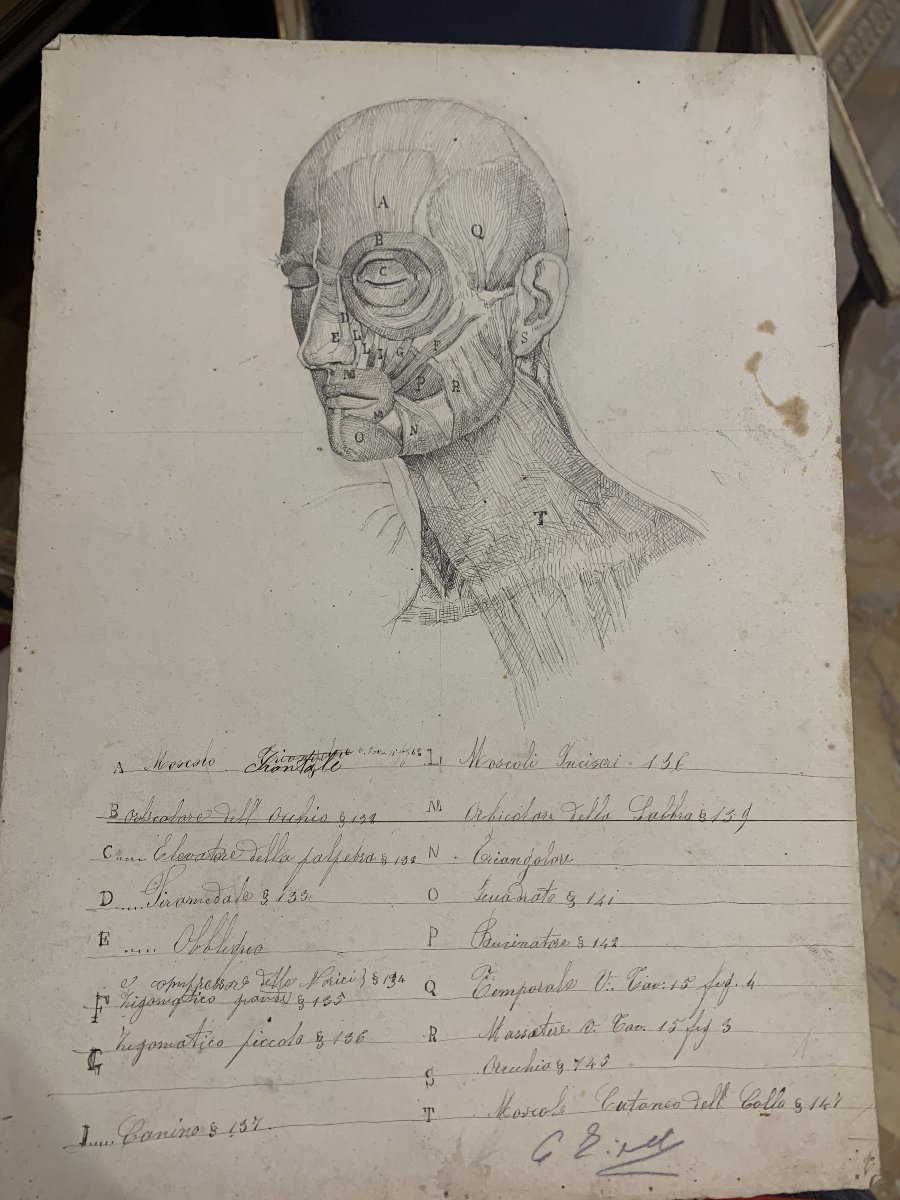 A
Q
B
C
D
E
L
L
I
G
F
S
M
P
R
M
N
O
T
A Moscolo Frontale
B Orbicolare dell' occhio § 132
C .... Elevatore della palpebra § 132
D .... Piramedale § 133
E .... Obbliquo
e compressore delle Narici § 134
F Zigomatico grande § 135
G Zigomatico piccolo § 136
I .... Canino § 137
L Moscoli Incisori 136
M Orbicolare della Labbra § 139
N . Triangolare
O Quadrato § 141
P Bucinatore § 142
Q Temporale V. Tav: 15 fig. 4
R Massatere V. Tav. 15 fig 3
S Orecchio § 145
T Moscolo Cutaneo dell Collo § 147